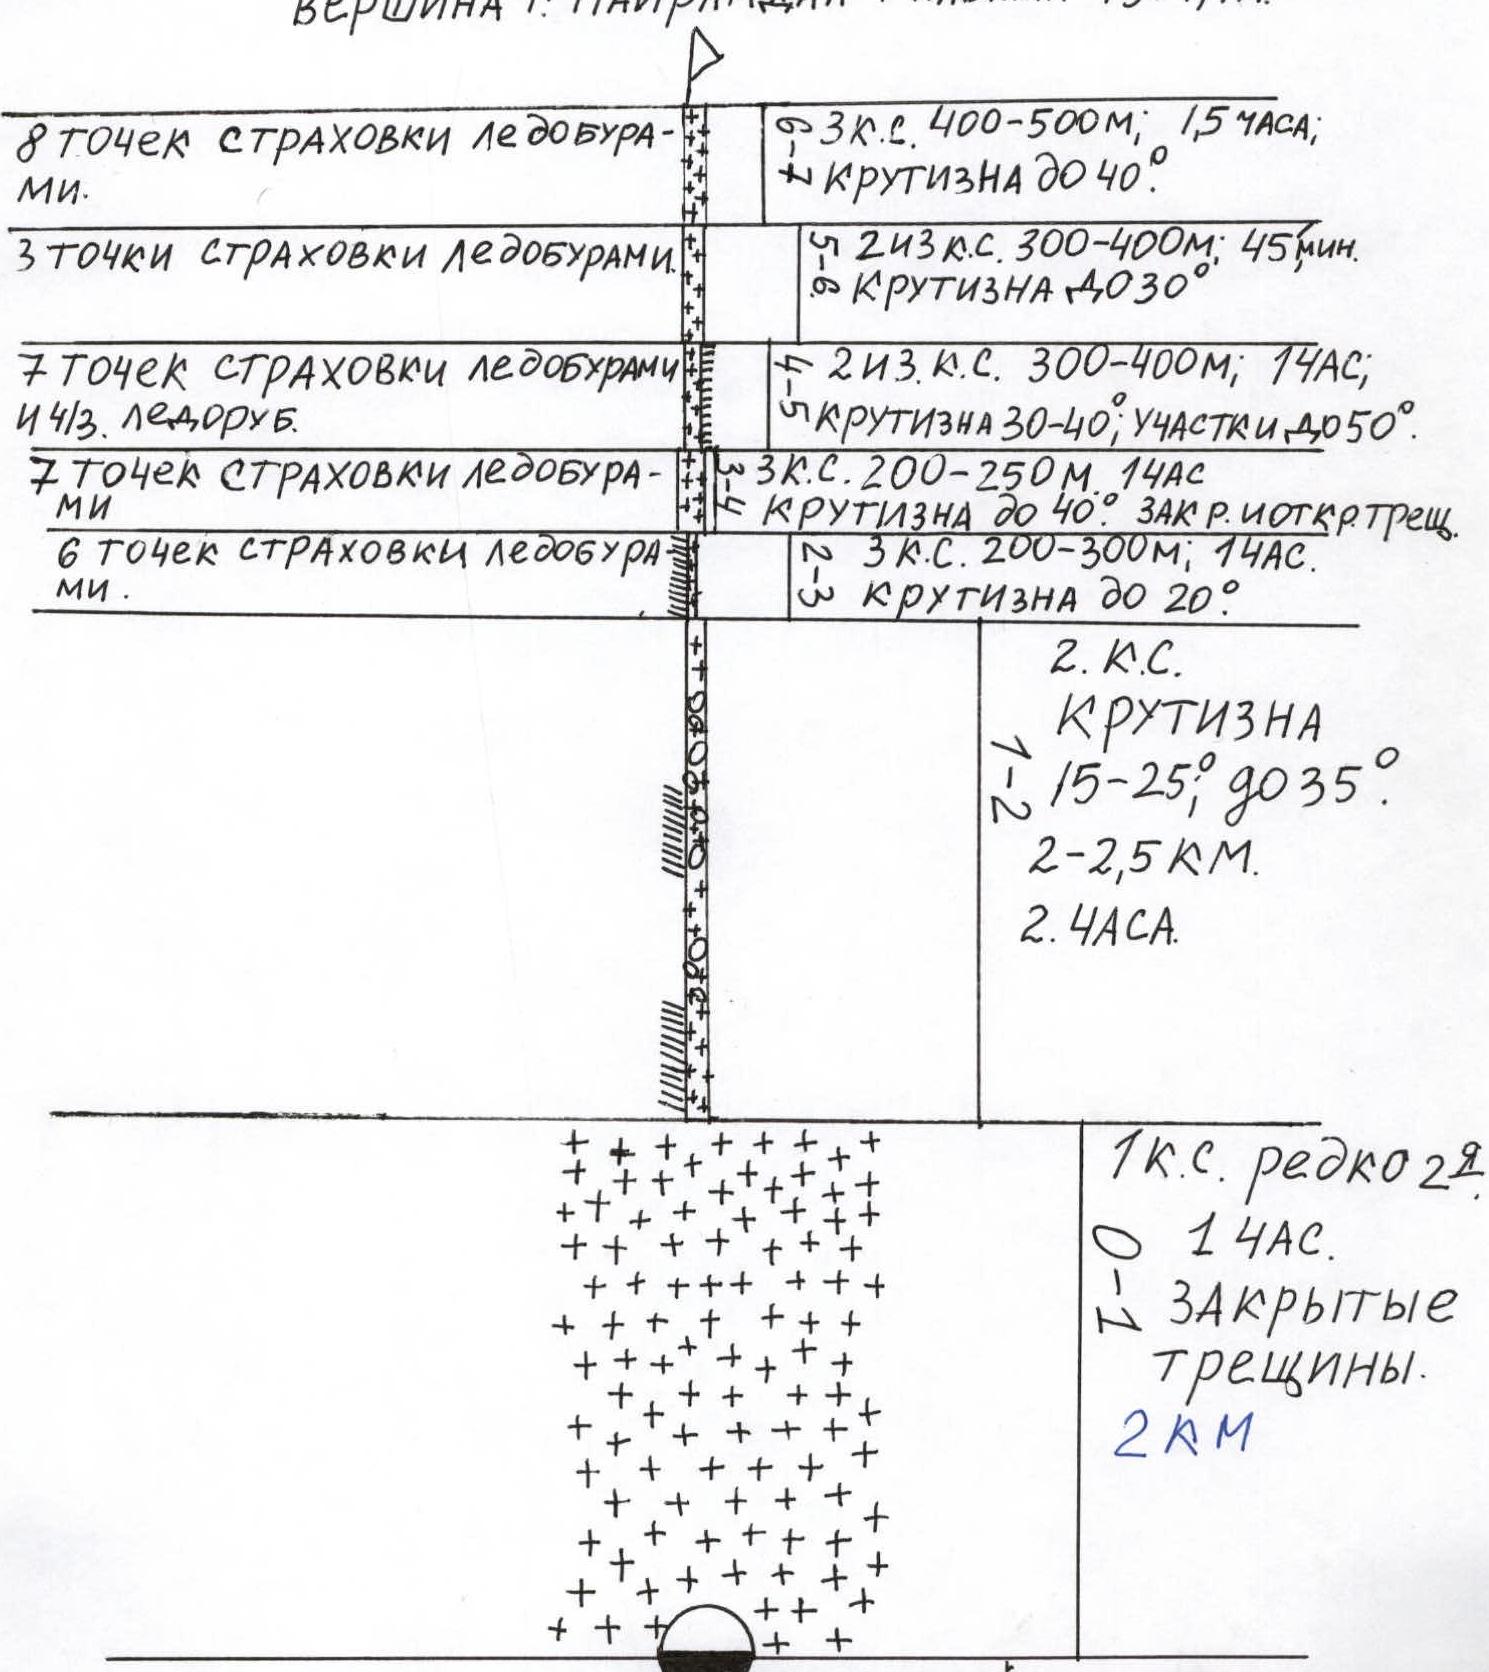 ВЕРШИНА Г. НАЙРАМДАЛ
8 ТОЧЕК СТРАХОВКИ ЛЕДОБУРА-
МИ.
6-7
3 К.С. 400-500М; 1,5 ЧАСА;
КРУТИЗНА ДО 40°.
3 ТОЧКИ СТРАХОВКИ ЛЕДОБУРАМИ.
5-6.
2 ИЗ К.С. 300-400М; 45 МИН.
КРУТИЗНА ДО 30°
7 ТОЧЕК СТРАХОВКИ ЛЕДОБУРАМИ
И Ч/З. ЛЕДОРУБ.
4-5
2 И З. К.С. 300-400М; 1 ЧАС;
КРУТИЗНА 30-40°; УЧАСТКИ ДО 50°.
7 ТОЧЕК СТРАХОВКИ ЛЕДОБУРА-
МИ
3-4
3 К.С. 200-250М. 1 ЧАС
КРУТИЗНА ДО 40°. ЗАКР. И ОТКР. ТРЕЩ.
6 ТОЧЕК СТРАХОВКИ ЛЕДОБУРА-
МИ.
2-3
3 К.С. 200-300М; 1 ЧАС.
КРУТИЗНА ДО 20°.
1-2
2. К.С.
КРУТИЗНА
15-25°; ДО 35°.
2-2,5 КМ.
2. ЧАСА.
0-1
1 К.С. РЕДКО 2Я.
1 ЧАС.
ЗАКРЫТЫЕ
ТРЕЩИНЫ.
2 КМ